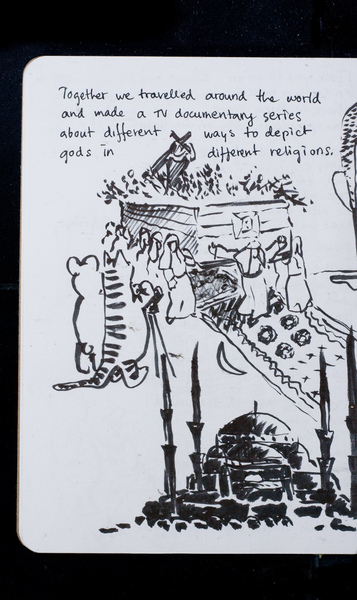 Together we travelled around the world
and made a TV documentary series
about different ways to depict
gods in different religions.